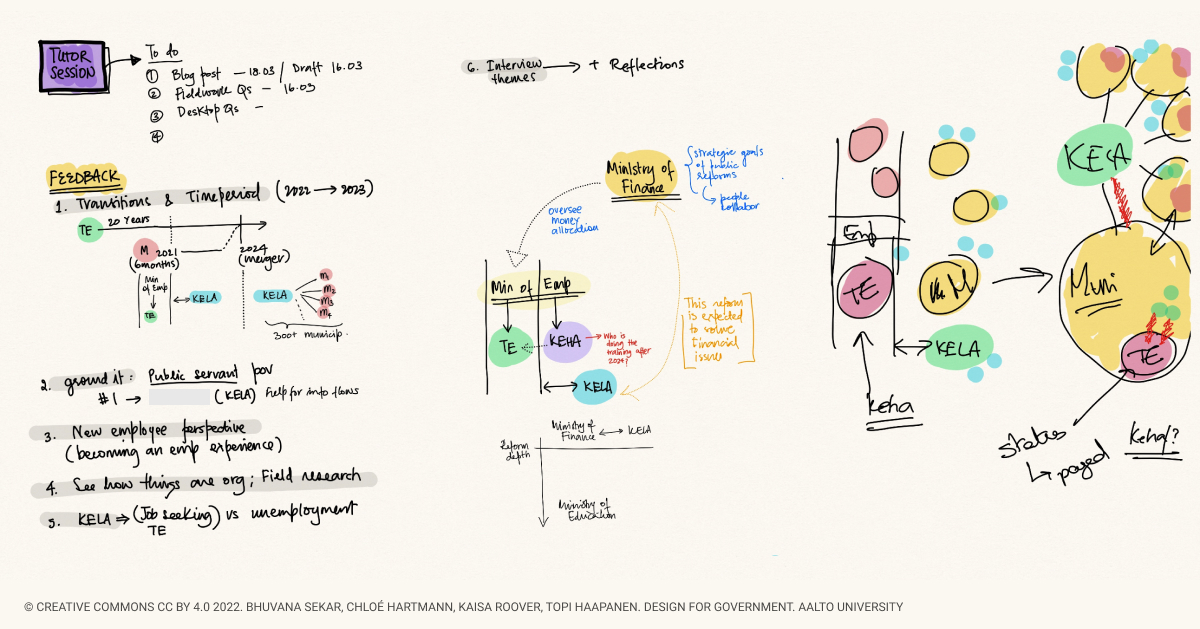 TUTOR
SESSION
To do
① Blog post — 18.03 / Draft 16.03
② Fieldwork Qs — 16.03
③ Desktop Qs —
④
FEEDBACK
1. Transitions & Timeperiod (2022 → 2023)
TE
20 years
M
2021
(6months)
2024
(merger)
Min
of Emp
TE
KELA
KELA
M1
M2
M3
M4
300+ municip.
2. ground it: Public servant pov
#1 → (KELA) help for info flows
3. New employee perspective
(becoming an emp experience)
4. See how things are org; Field research
5. KELA ⇒ (Job seeking) vs unemployment
TE
6. Interview → + Reflections
themes
Ministry of
Finance
strategic goals
of public
reforms
↳ people
collabor
oversee
money
allocation
Min of Emp
TE
KEHA
→ Who is
doing the
training after
2024?
KELA
This reform
is expected
to solve
financial
issue
Ministry of
Finance ↔ KELA
Reform
depth
Ministry of
Education
Emp
TE
M
KELA
Keha
KELA
Muni
TE
status
↳ payed
Keha?
© CREATIVE COMMONS CC BY 4.0 2022. BHUVANA SEKAR, CHLOÉ HARTMANN, KAISA ROOVER, TOPI HAAPANEN. DESIGN FOR GOVERNMENT. AALTO UNIVERSITY